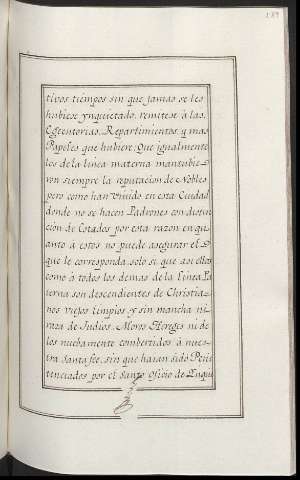 tivos tiempos sin que jamas se les
hubiese ynquietado, remitese à las
Egecutorias, Repartimientos y mas
Papeles que hubiere: Que igualmente
los de la linea materna mantubie-
ron siempre la reputacion de Nobles
pero como han vivido en esta Ciudad
donde no se hacen Padrones con distin-
cion de Estados por esta razon en qu-
anto à estos no puede asegurar el
que le corresponda, solo si que asi ellos
como à todos los demas de la Linea Pa-
terna son descendientes de Christia-
nos viejos limpios y sin mancha ni
raza de Judios, Moros Hereges ni de
los nuebamente combertidos à nues-
tra Santa fee, sin que haian sido Peni-
tenciados por el Santo Oficio de Ynqui